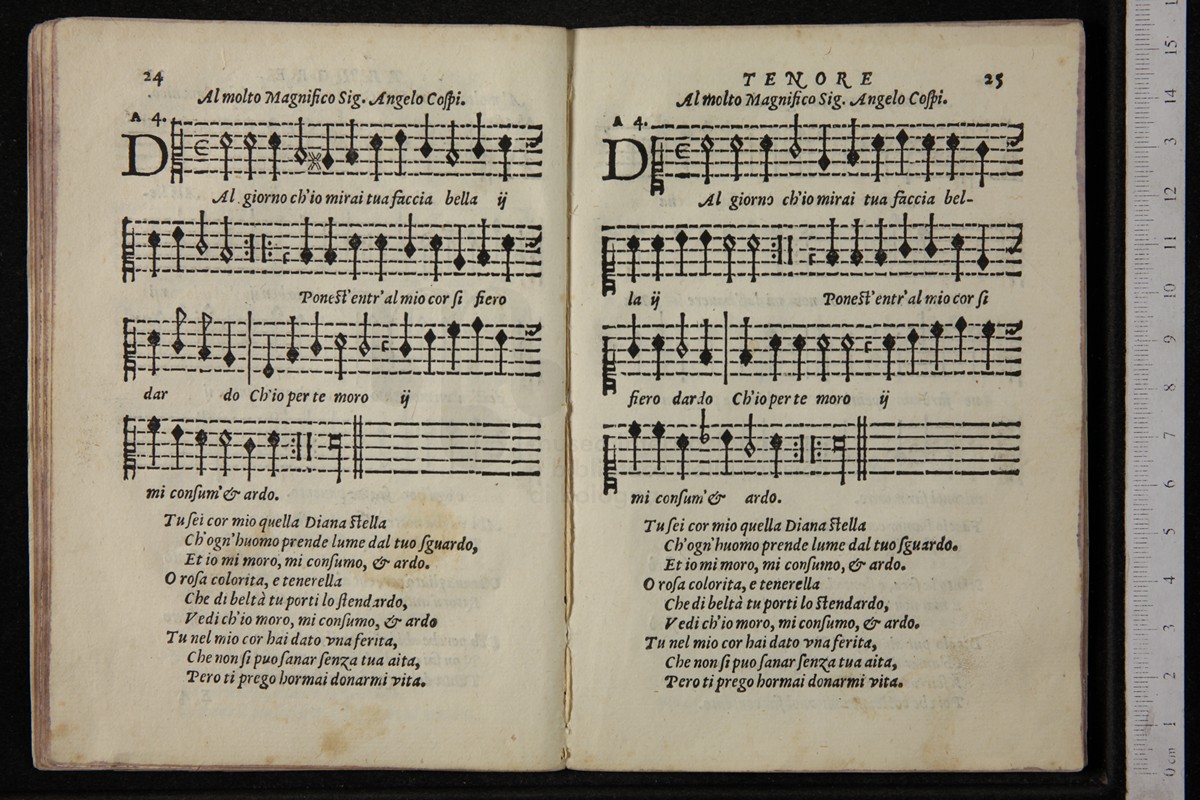 24
Al molto Magnifico Sig. Angelo Coſpi.
A 4.
D
Al giorno ch'io mirai tua faccia bella ij
Poneſt'entr'al mio cor ſi fiero
dar do Ch'io per te moro ij
mi conſum' & ardo.
Tu ſei cor mio quella Diana ſtella
Ch'ogn'huomo prende lume dal tuo ſguardo,
Et io mi moro, mi conſumo, & ardo.
O roſa colorita, e tenerella
Che di beltà tu porti lo ſtendardo,
Vedi ch'io moro, mi conſumo, & ardo
Tu nel mio cor hai dato vna ferita,
Che non ſi puo ſanar ſenza tua aita,
Pero ti prego hormai donarmi vita.
TENORE 25
Al molto Magnifico Sig. Angelo Coſpi.
A 4.
D
Al giorno ch'io mirai tua faccia bel-
la ij Poneſt'entr'al mio cor ſi
fiero dardo Ch'io per te moro ij
mi conſum' & ardo.
Tu ſei cor mio quella Diana ſtella
Ch'ogn'huomo prende lume dal tuo ſguardo.
Et io mi moro, mi conſumo, & ardo.
O roſa colorita, e tenerella
Che di beltà tu porti lo ſtendardo,
Vedi ch'io moro, mi conſumo, & ardo.
Tu nel mio cor hai dato vna ferita,
Che non ſi puo ſanar ſenza tua aita,
Pero ti prego hormai donarmi vita.
0 cm 1 2 3 4 5 6 7 8 9 10 11 12 13 14 15